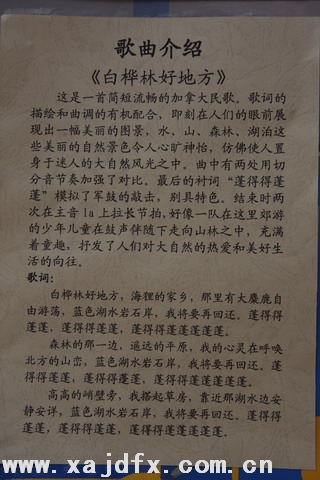 歌曲介绍
《白桦林好地方》
这是一首简短流畅的加拿大民歌。歌词的
描绘和曲调的有机配合，即刻在人们的眼前展
现出一幅美丽的图景，水、山、森林、湖泊这
些美丽的自然景色令人心旷神怡，仿佛使人置
身于迷人的大自然风光之中。曲中有两处用切
分音节奏加强了对比。最后的衬词“蓬得得蓬
蓬”模拟了军鼓的敲击，别具特色。结束时两
次在主音la上拉长节拍，好像一队在这里郊游
的少年儿童在鼓声伴随下走向山林之中，充满
着童趣，抒发了人们对大自然的热爱和美好生
活的向往。
歌词：
白桦林好地方，海狸的家乡，那里有大麋鹿自
由游荡，蓝色湖水岩石岸，我将要再回还。蓬得得
蓬蓬，蓬得得蓬蓬，蓬得得蓬蓬蓬蓬蓬。
森林的那一边，遥远的平原，我的心灵在呼唤
北方的山峦，蓝色湖水岩石岸，我将要再回还。蓬
得得蓬蓬，蓬得得蓬蓬，蓬得得蓬蓬蓬蓬蓬。
高高的峭壁旁，我搭起草房，靠近那湖水边安
静安详，蓝色湖水岩石岸，我将要再回还。蓬得得
蓬蓬，蓬得得蓬蓬，蓬得得蓬蓬蓬蓬蓬。
www.xajdfx.com.cn